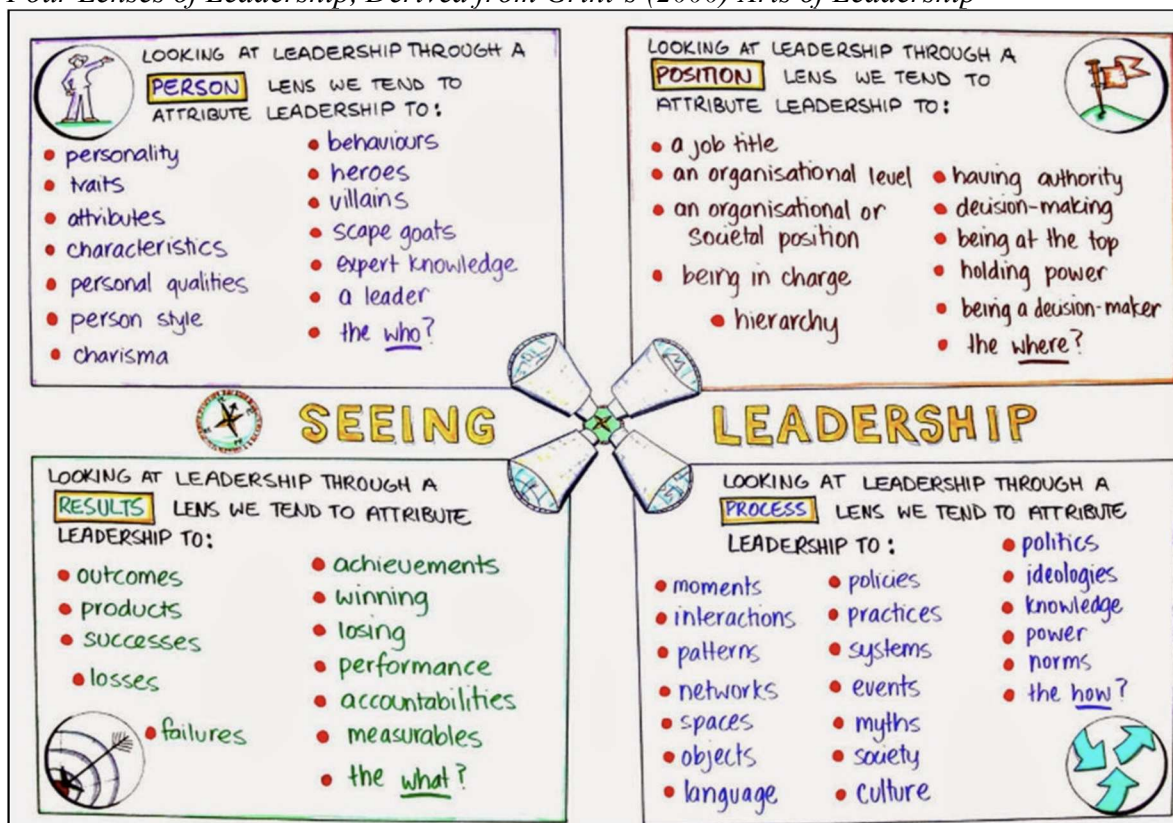 Four Lenses of Leadership, Derived from Grint's (2000) Arts of Leadership
LOOKING AT LEADERSHIP THROUGH A
PERSON LENS WE TEND TO
ATTRIBUTE LEADERSHIP TO:
• personality
• traits
• attributes
• characteristics
• personal qualities
• person style
• charisma
• behaviours
• heroes
• villains
• scape goats
• expert knowledge
• a leader
• the who?
LOOKING AT LEADERSHIP THROUGH A
POSITION LENS WE TEND TO
ATTRIBUTE LEADERSHIP TO:
• a job title
• an organisational level
• an organisational or
societal position
• being in charge
• hierarchy
• having authority
• decision-making
• being at the top
• holding power
• being a decision-maker
• the where?
SEEING LEADERSHIP
LOOKING AT LEADERSHIP THROUGH A
RESULTS LENS WE TEND TO ATTRIBUTE
LEADERSHIP TO:
• outcomes
• products
• successes
• losses
• failures
• achievements
• winning
• losing
• performance
• accountabilities
• measurables
• the what?
LOOKING AT LEADERSHIP THROUGH A
PROCESS LENS WE TEND TO ATTRIBUTE
LEADERSHIP TO:
• moments
• interactions
• patterns
• networks
• spaces
• objects
• language
• policies
• practices
• systems
• events
• myths
• society
• culture
• politics
• ideologies
• knowledge
• power
• norms
• the how?